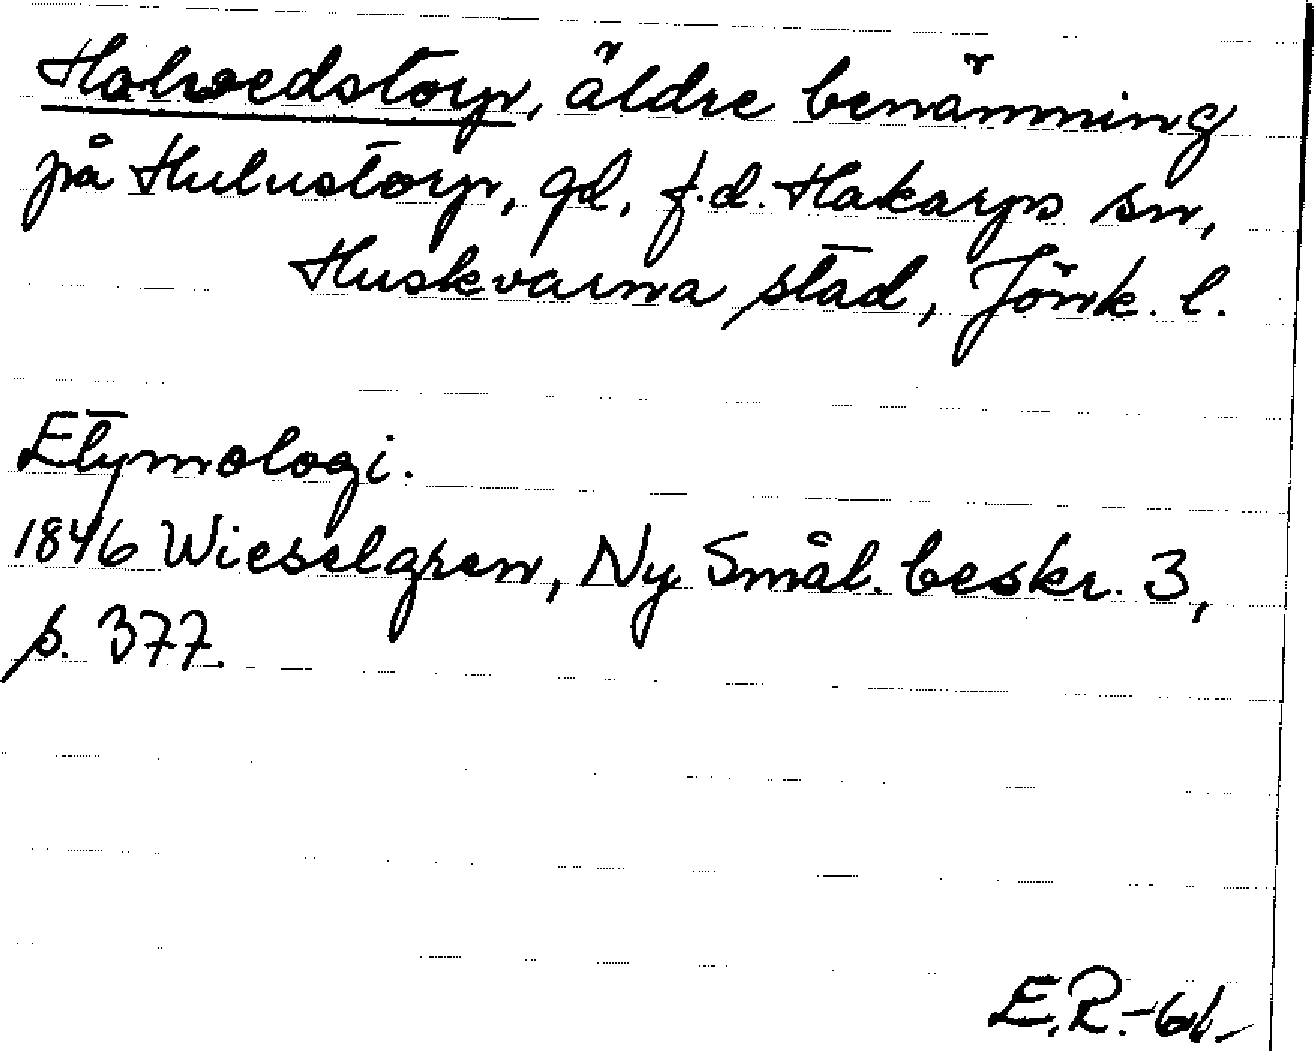 Holvedstorp, äldre benämning
på Hulustorp, gd, f.d. Hakarps sn,
Huskvarna stad, Jönk. l.
Etymologi.
1846 Wieselgren, Ny Smål. beskr. 3,
s. 377.
E.R.-61.-